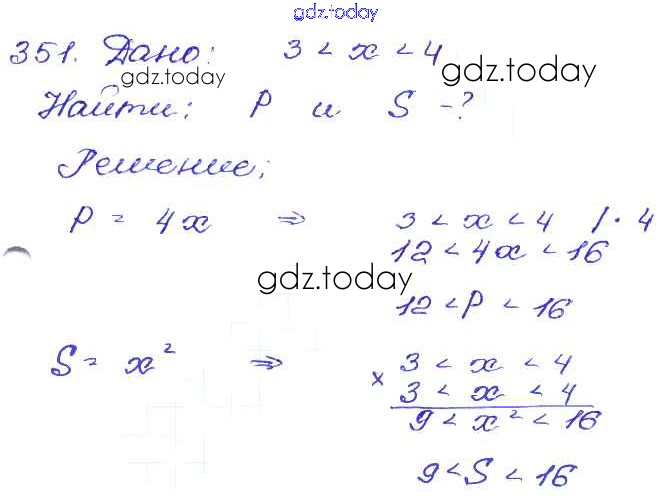 gdz.today
351. Дано: 3 < x < 4
gdz.today gdz.today
Найти: P и S -?
Решение;
P = 4x ⇒ 3 < x < 4 /· 4
12 < 4x < 16
gdz.today
12 < P < 16
S = x² ⇒ 3 < x < 4
× 3 < x < 4
9 < x² < 16
9 < S < 16